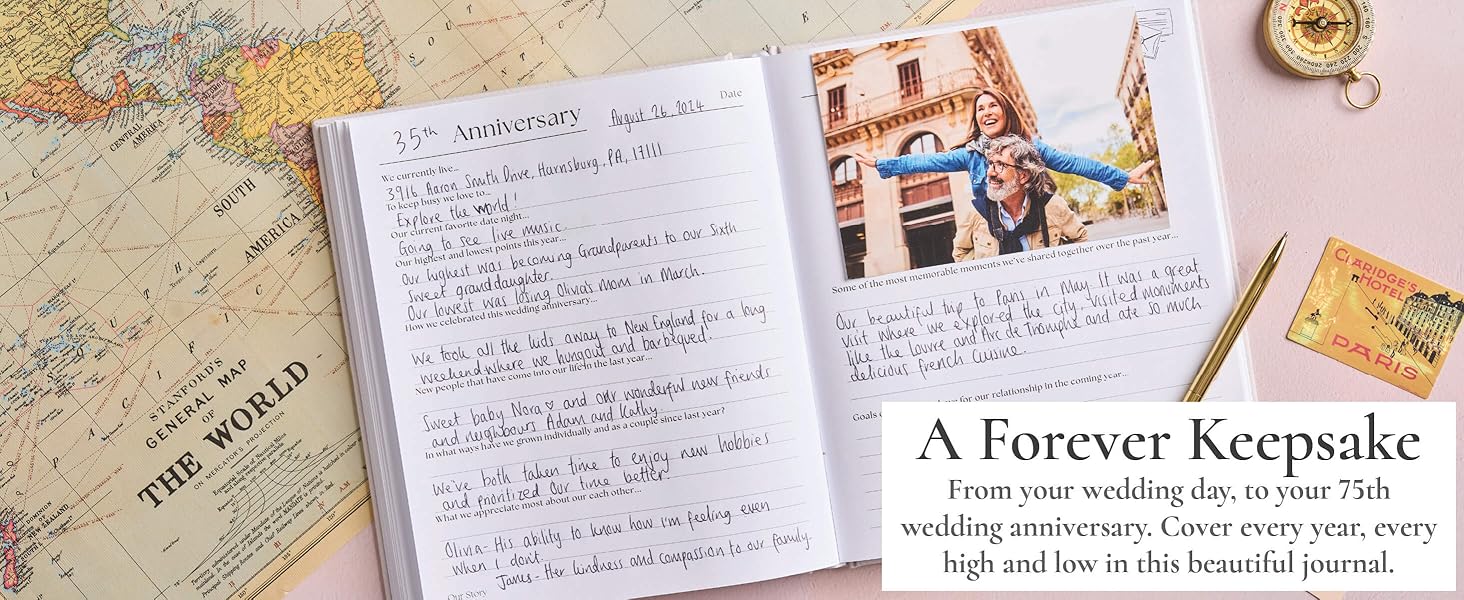 35th Anniversary August 26 2024 Date
We currently live...
3916 Aaron Smith Drive, Harrisburg, PA, 17111
To keep busy we love to...
Explore the world!
Our current favorite date night...
Going to see live music.
Our highest and lowest points this year...
Our highest was becoming Grandparents to our sixth
sweet granddaughter.
Our lowest was losing Olivia's mom in March.
How we celebrated this wedding anniversary...
We took all the kids away to New England for a long
weekend where we hungout and barbequed!
New people that have come into our life in the last year...
Sweet baby Nora ♡ and our wonderful new friends
and neighbours Adam and Kathy.
In what ways have we grown individually and as a couple since last year?
We've both taken time to enjoy new hobbies
and prioritized our time better.
What we appreciate most about our each other...
Olivia- His ability to know how I'm feeling even
when I don't.
James- Her kindness and compassion to our family.
Our Story
Some of the most memorable moments we've shared together over the past year...
Our beautiful trip to Paris in May. It was a great
visit where we explored the city, visited monuments
like the Louvre and Arc de Triomphe and ate so much
delicious french cuisine.
Goals for our relationship in the coming year...
A Forever Keepsake
From your wedding day, to your 75th
wedding anniversary. Cover every year, every
high and low in this beautiful journal.
CENTRAL
AMERICA
SOUTH
AMERICA
SOUTH
PACIFIC
STANFORD'S
GENERAL MAP
OF
THE WORLD
ON MERCATOR'S PROJECTION
DOMINION
OF
NEW ZEALAND
CLARIDGE'S
HOTEL
PARIS